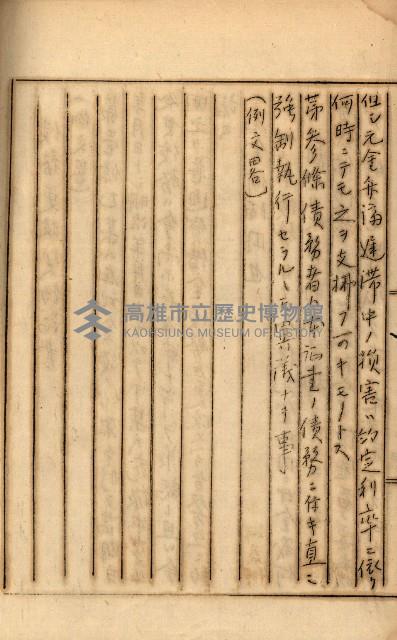 但シ元金弁済遅滞中ノ損害ハ約定利率ニ依リ
何時ニテモ之ヲ支払フベキモノトス
第参條債務者ハ本証書ノ債務ニ付キ直ニ
強制執行セラルヽモ異議ナキ事
(例文畧)
高雄市立歷史博物館
KAOHSIUNG MUSEUM OF HISTORY